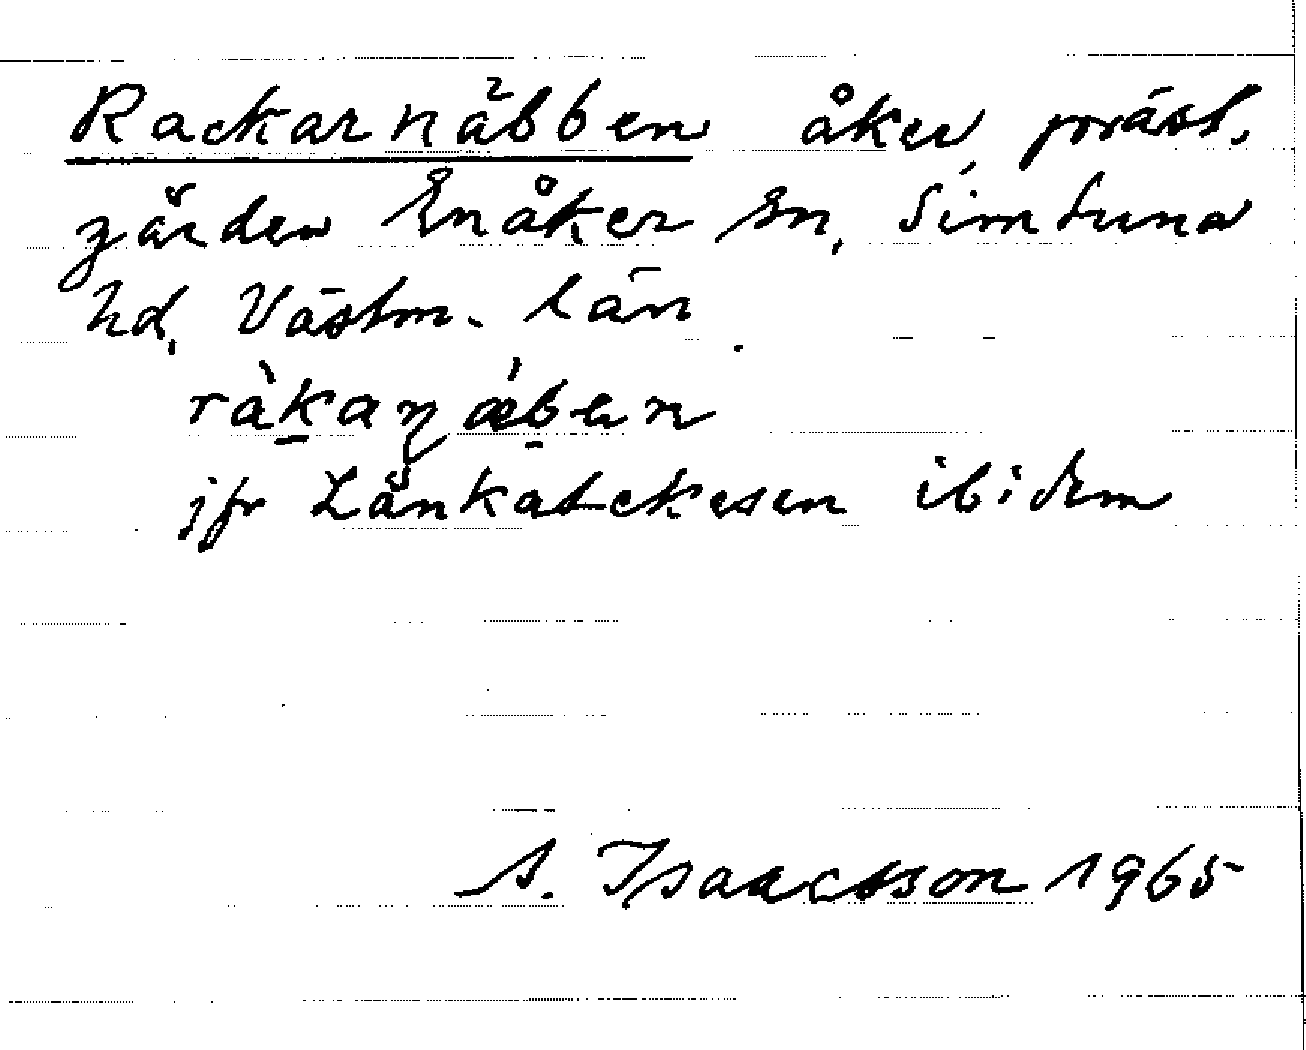 Rackarnäbben åker, präst.
gården Enåker sn, Simtuna
hd, Västm. län.
ràkaɳǽbən
jfr Lånkatekesen ibidem
A. Isaacsson 1965